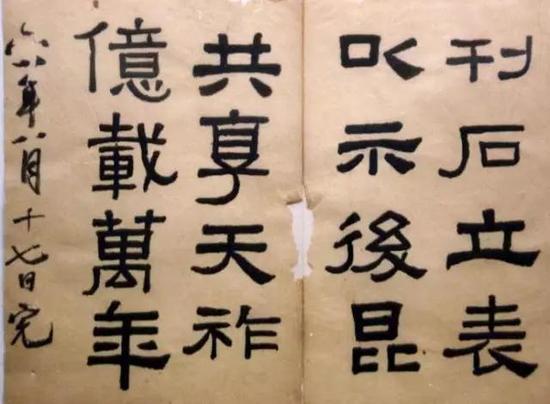 刊石立表
㠯示後昆
共享天祚
億載萬年
六八年八月十七日完